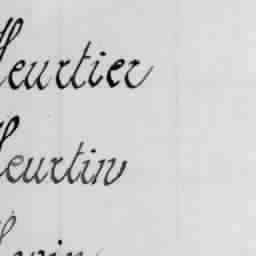 Heurtier
Heurtin